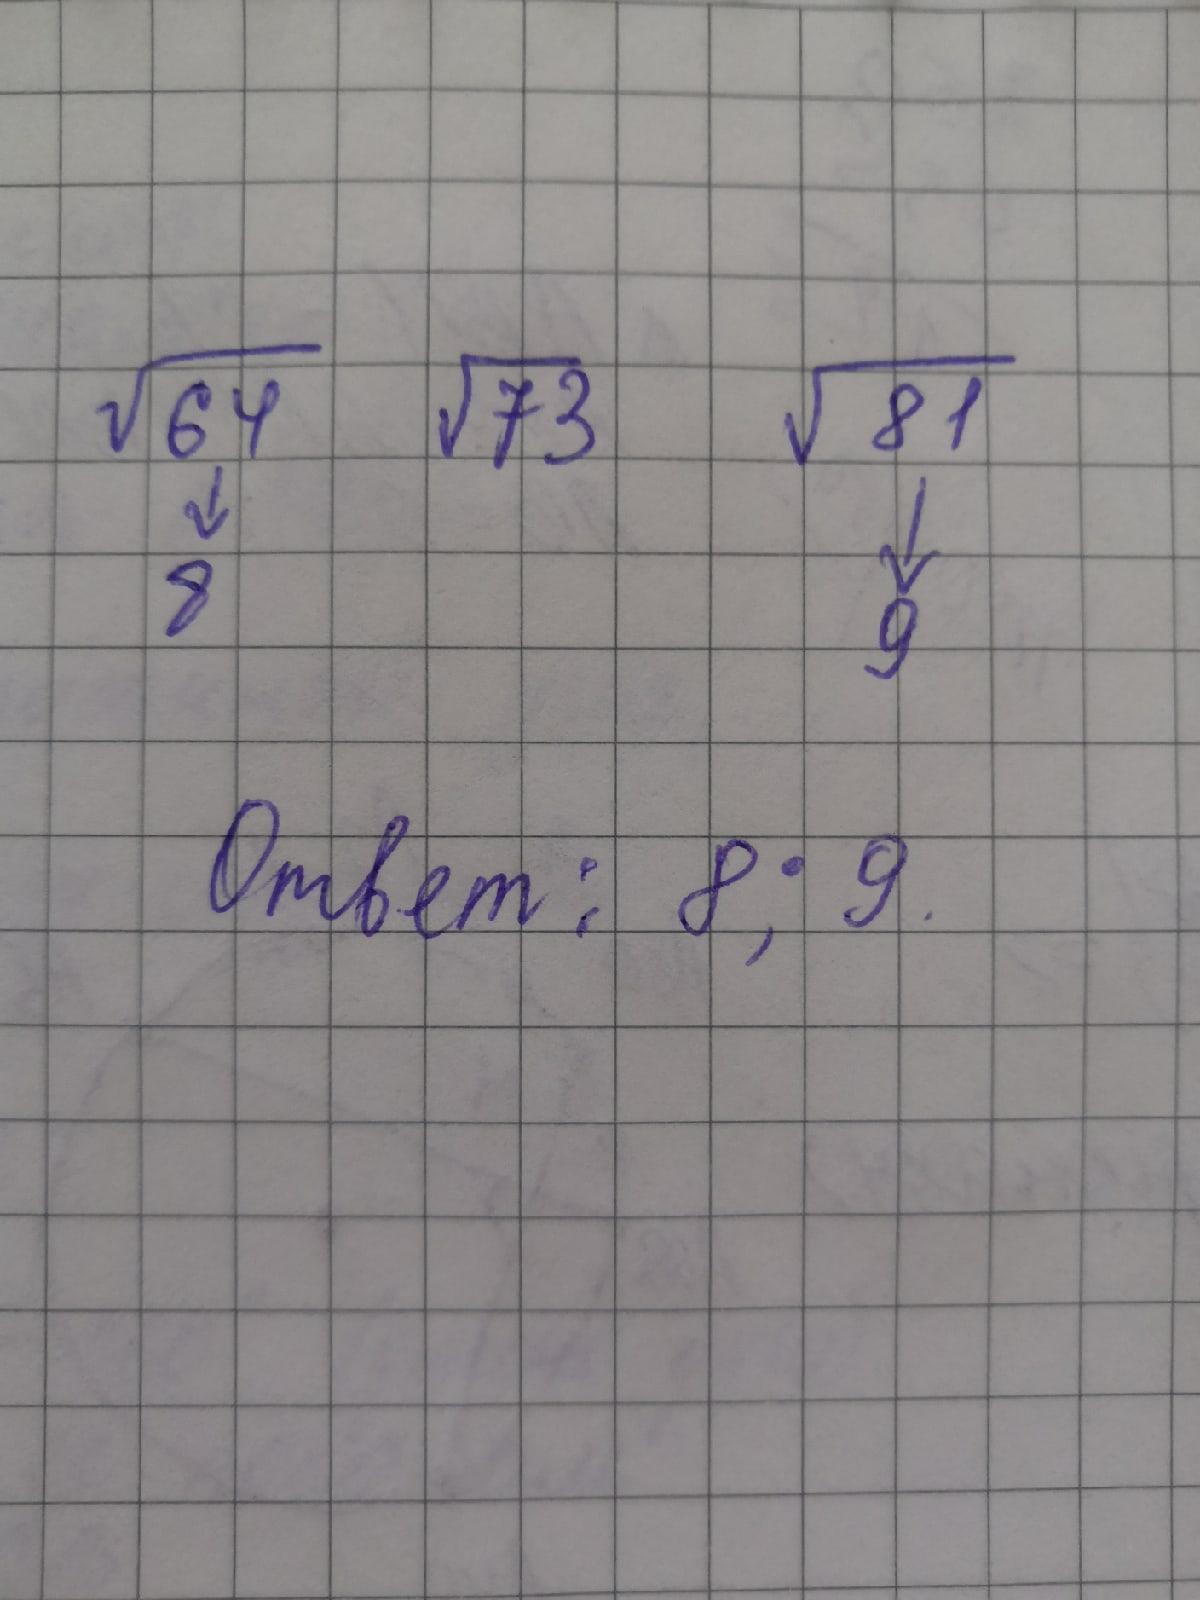 √64 √73 √81
↓ ↓
8 9
Ответ: 8; 9.